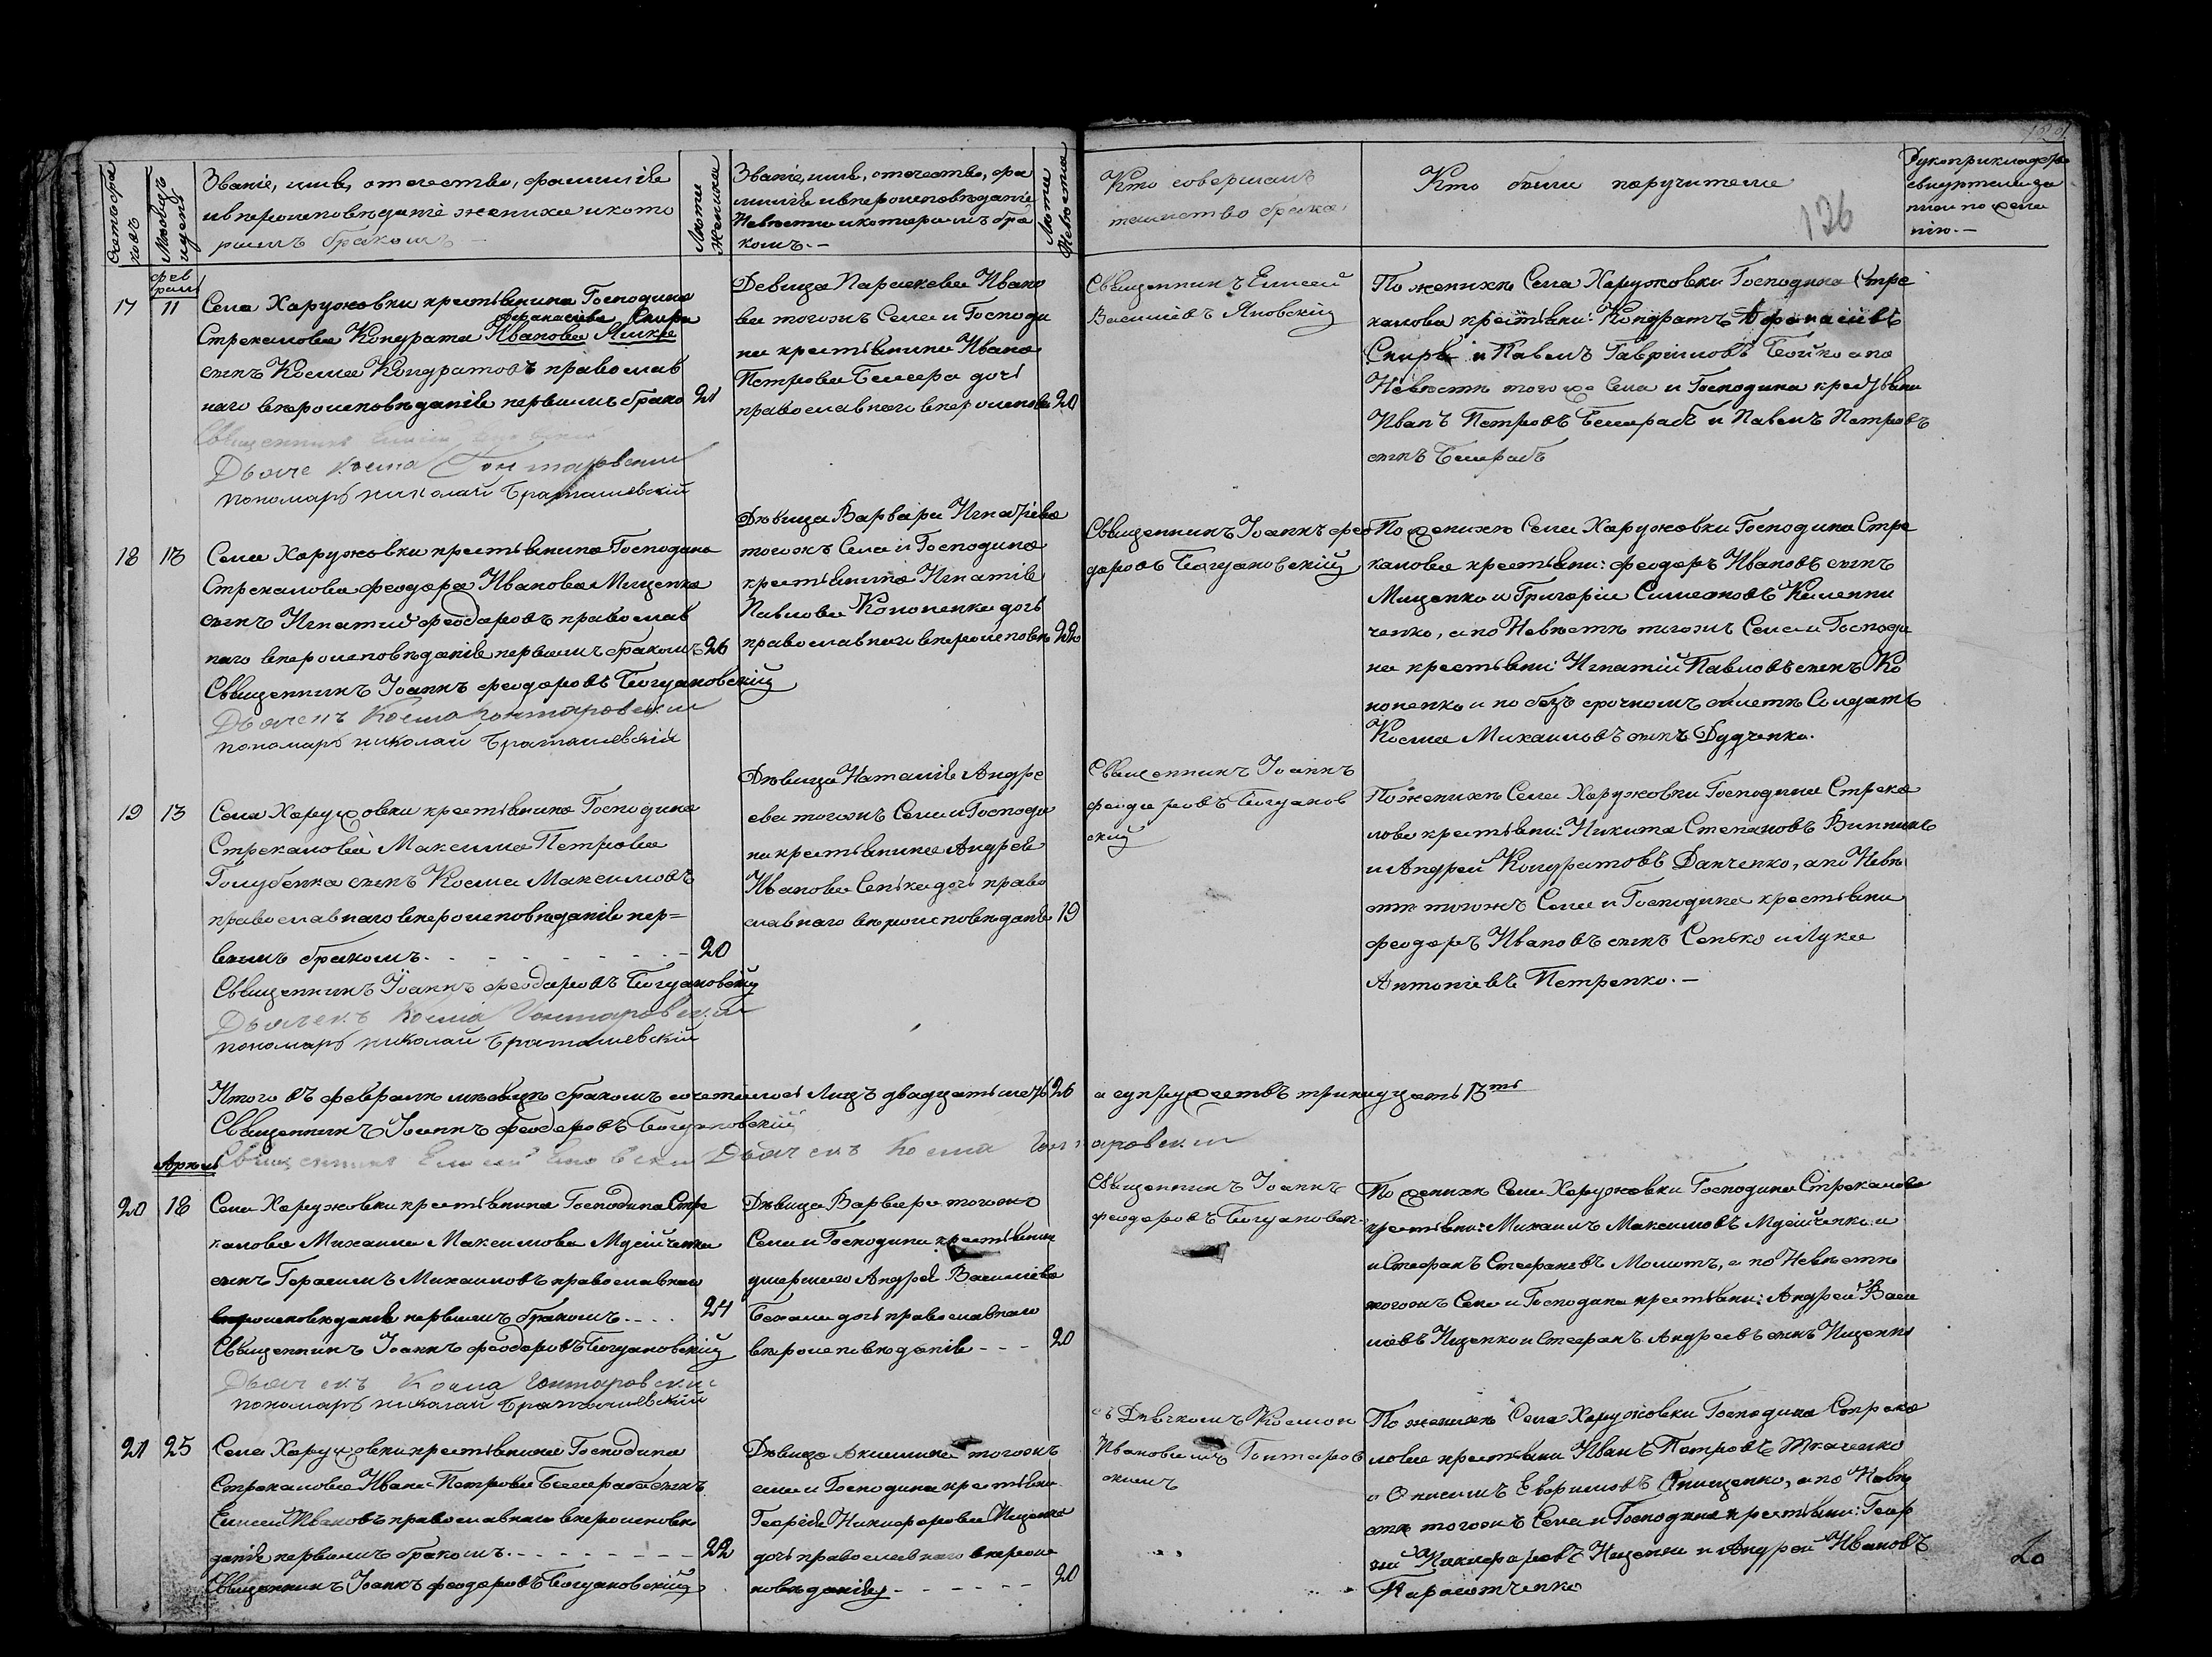 Счетъ бра
ковъ
Мѣсяцъ
и день
Званіе, имя, отечество, фамилія
и вѣроисповѣданіе жениха и кото
рымъ бракомъ
Лѣта
Жениха
Званіе, имя, отечество, фа
милія и вѣроисповѣданіе
Невѣсты и которымъ бра
комъ.-
Лѣта
Невѣсты
Кто совершалъ
таинство брака
Кто были поручители
126
фев
раль
17
11
Села Харужовки крестьянина Господина
Афанасіева Скира
Стрекалова Кондрата Иванова
сынъ Косма Кондратовъ православ
наго вѣроисповѣданія первымъ брако
21
Священникъ Елисей Яновскій
Дьячекъ Косма Гонтаровскій
пономарь николай Браташевскій
Девица Параскева Ивано
ва тогожъ Села и Господи
на крестьянина Ивана
Петрова Бесараба дочь
православнаго вѣроисповѣ
20
Священникъ Елисей
Васильевъ Яновскій
По женихѣ Села Харужовки Господина Стре
калова крестьяни: Кондратъ Афанасіевъ
Скира и Павелъ Гавриловъ Бойко а по
Невѣстѣ того же Села и Господина крестьяни
Иванъ Петровъ Бесарабъ и Павелъ Петровъ
сынъ Бесарабъ
18
13
Села Харужовки крестьянина Господина
Стрекалова феодора Иванова Мищенка
сынъ Игнатій феодоровъ православ
наго вѣроисповѣданія первымъ бракомъ
26
Священникъ Іоаннъ феодоровъ Богдановскій
Дьячекъ Косма Гонтаровскій
пономарь николай Браташевскій
Дѣвица Варвара Игнатіева
тогожъ Села и Господина
крестьянина Игнатія
Павлова Кононенка дочь
православнаго вѣроисповѣ
22
Священникъ Іоаннъ фео
доровъ Богдановскій
По женихѣ Села Харужовки Господина Стре
калова крестьяни: феодоръ Ивановъ сынъ
Мищенко и Григорій Симеоновъ
ченко, а по Невѣстѣ тогожъ Села и Господи
на крестьяни: Игнатій Павловъ сынъ Ко
ноненко и по безъ срочномъ билетѣ Солдатъ
Косма Михаиловъ сынъ Дудченко.
19
13
Села Харужовки крестьянина Господина
Стрекалова Максима Петрова
Голубенка сынъ Косма Максимовъ
православнаго вѣроисповѣданія пер=
вымъ бракомъ. - - - - - - - -
20
Священникъ Іоаннъ феодоровъ Богдановскій
Дьячекъ Косма Гонтаровскій
пономарь николай Браташевскій
Дѣвица Наталія Андре
ева тогожъ Села и Господи
на крестьянина Андрея
Иванова Сенька дочь право
славнаго вѣроисповѣданія
19
Священникъ Іоаннъ
феодоровъ Богданов
скій
По женихѣ Села Харужовки Господина Стрека
лова крестьяни: Никита Степановъ Винникъ
и Андрей Кондратовъ Данченко, а по Невѣ
стѣ тогожъ Села и Господина крестьяни
феодоръ Ивановъ сынъ Сенько и Лука
Антоніевъ Петренко.-
Итого въ февралѣ мѣсяцѣ бракомъ сочеталось Лицъ двадцать шесть 26
а супружествъ тринадцать 13ть
Священникъ Іоаннъ феодоровъ Богдановскій
Священникъ Елисей Яновскій Дьячекъ Косма Гонтаровскій
Апрель
20
18
Села Харужовки крестьянина Господина Стре
калова Михаила Максимова
сынъ Герасимъ Михаиловъ православнаго
вѣроисповѣданія первымъ бракомъ. - - -
24
Священникъ Іоаннъ феодоровъ Богдановскій
Дьячекъ Косма Гонтаровскій
пономарь николай Браташевскій
Дѣвица Варвара тогожъ
Села и Господина крестьянина
умершаго Андрея Василіева
дочь православнаго
вѣроисповѣданія - - -
20
Священникъ Іоаннъ
феодоровъ Богдановск.
По женихѣ Села Харужовки Господина Стрекалова
крестьяни: Михаилъ Максимовъ и
и Стефанъ Стефановъ Момотъ, а по Невѣстѣ
тогожъ Села и Господина крестьяни: Андрей Васи
левъ Ищенко и Стефанъ Андреевъ сынъ Ищенко
21
25
Села Харужовки крестьянина Господина
Стрекалова Ивана Петрова Бесараба сынъ
Елисей Ивановъ православнаго вѣроисповѣ
данія первымъ бракомъ. - - - - - - -
22
Священникъ Іоаннъ феодоровъ Богдановскій
Дѣвица Акилина тогожъ
села и Господина крестьяни
Георгія Никифорова Ищенка
дочь православнаго вѣроис
повѣданія - - - - - -
20
съ Дьячкомъ Космою
Ивановымъ Гонтаров
скимъ
По женихѣ Села Харужовки Господина Стрека
лова крестьяни Иванъ Петровъ Ткаченко
и Онисимъ Евфимовъ Онищенко, а по Невѣ
стѣ тогожъ Села и Господина крестьяни: Геор
гій Никифоровъ Ищенко и Андрей Ивановъ